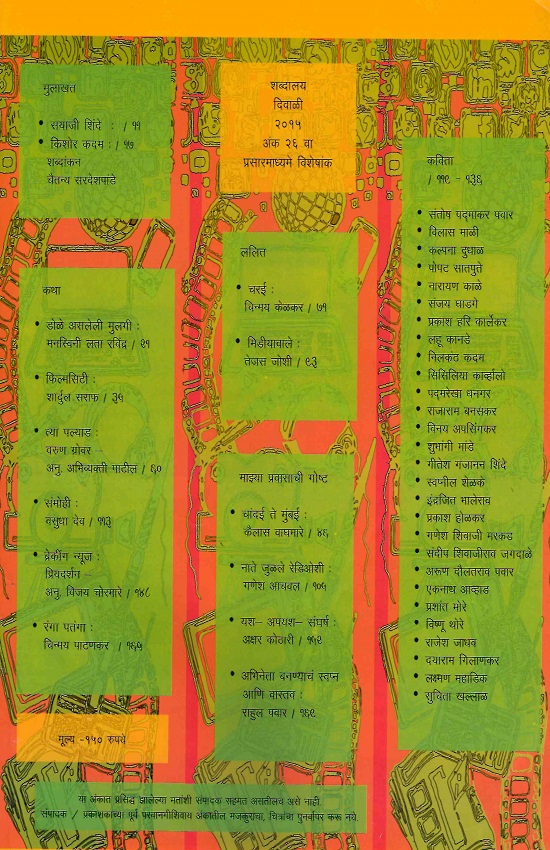 मुलाखत
• सयाजी शिंदे : / ११
• किशोर कदम : / १७
शब्दांकन
चैतन्य सरदेशपांडे
कथा
• डोळे असलेली मुलगी :
मनस्विनी लता रवींद्र / २१
• फिल्मसिटी :
शार्दुल सराफ / ३५
• त्या पल्याड :
वरुण ग्रोवर –
अनु. अभिव्यक्ती पाटील / ६०
• संमोही :
वसुधा देव / ११३
• ब्रेकींग न्यूज :
प्रियदर्शन –
अनु. विजय चोरमारे / १४८
• रंगा पतंगा :
चिन्मय पाटणकर / १६५
मूल्य -१५० रुपये
शब्दालय
दिवाळी
२०१५
अंक २६ वा
प्रसारमाध्यमे विशेषांक
ललित
• चरई :
चिन्मय केळकर / ७१
• मिडीयावाले :
तेजस जोशी / ९३
माझ्या प्रवासाची गोष्ट
• चांदई ते मुंबई :
कैलास वाघमारे / ४६
• नाते जुळले रेडिओशी :
गणेश आचवल / १०५
• यश– अपयश– संघर्ष :
अक्षर कोठारी / १५२
• अभिनेता बनण्याचं स्वप्न
आणि वास्तव :
राहुल पवार / १६९
कविता
/ ११९ - १३६
• संतोष पद्माकर पवार
• विलास माळी
• कल्पना दुधाळ
• पोपट सातपुते
• नारायण काळे
• संजय घाडगे
• प्रकाश हरि कार्लेकर
• लहू कानडे
• निलकंठ कदम
• सिसिलिया कार्व्हालो
• पद्मरेखा धनगर
• राजाराम बनसकर
• विनय अपसिंगकर
• शुभांगी मांडे
• गीतेश गजानन शिंदे
• स्वप्नील शेळके
• इंद्रजित भालेराव
• प्रकाश होळकर
• गणेश शिवाजी मरकड
• संदीप शिवाजीराव जगदाळे
• अरूण दौलतराव पवार
• एकनाथ आव्हाड
• प्रशांत मोरे
• विष्णू थोरे
• राजेश जाधव
• दयाराम गिलाणकर
• लक्ष्मण महाडिक
• सुचिता खल्लाळ
या अंकात प्रसिद्ध झालेल्या मतांशी संपादक सहमत असतीलच असे नाही.
संपादक / प्रकाशकांच्या पूर्व परवानगीशिवाय अंकातील मजकुराचा, चित्रांचा पुनर्वापर करू नये.